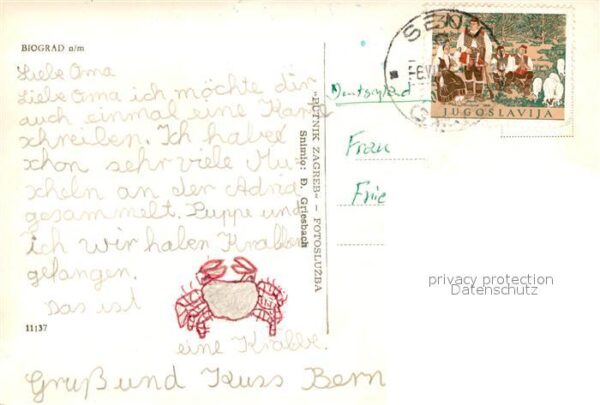 BIOGRAD n/m
Liebe Oma
Liebe Oma ich möchte dir
auch einmal eine Kart
schreiben. Ich habe
schon sehr viele Mu
scheln an der Adria
gesammelt. Puppe und
ich wir haben Krabben
gefangen.
Das ist
eine Krabbe.
11137
Gruß und Kuss Bern
»PUTNIK ZAGREB« – FOTOSLUŽBA
Snimio: Đ. Griesbach
JUGOSLAVIJA
Deutschland
Frau
Frie
privacy protection
Datenschutz